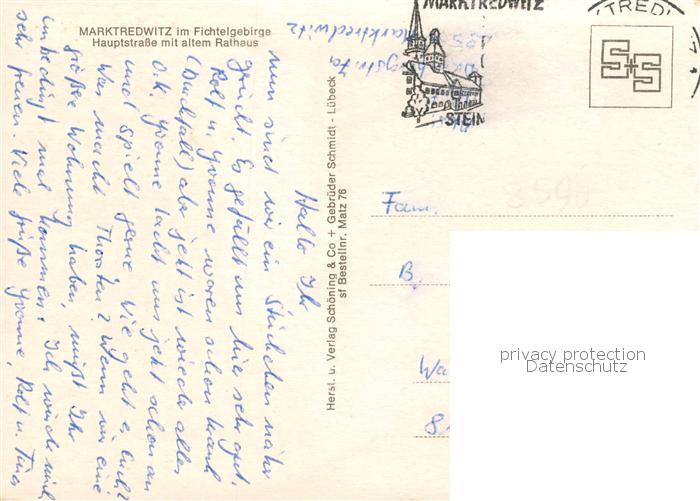 MARKTREDWITZ im Fichtelgebirge
Hauptstraße mit altem Rathaus
Hallo Ihr
nun sind wir ein Stückchen näher
gerückt. Es gefällt uns hier sehr gut.
Rolf u. Yvonne waren schon krank
(Durchfall) aber jetzt ist wieder alles
o.k. Yvonne lacht uns jetzt schon an
und spielt gerne. Wie geht es Euch?
Was macht Thorsten? Wenn wir eine
größere Wohnung haben, müßt Ihr
unbedingt mal kommen. Ich würde mich
sehr freuen. Viele Grüße Yvonne, Rolf u.
Marktredwitz
Herst. u. Verlag Schöning & Co + Gebrüder Schmidt - Lübeck
sf Bestellnr. Matz 76
MARKTREDWITZ
STEIN
TREDI
S+S
Fam.
B.
Wa
8
privacy protection
Datenschutz